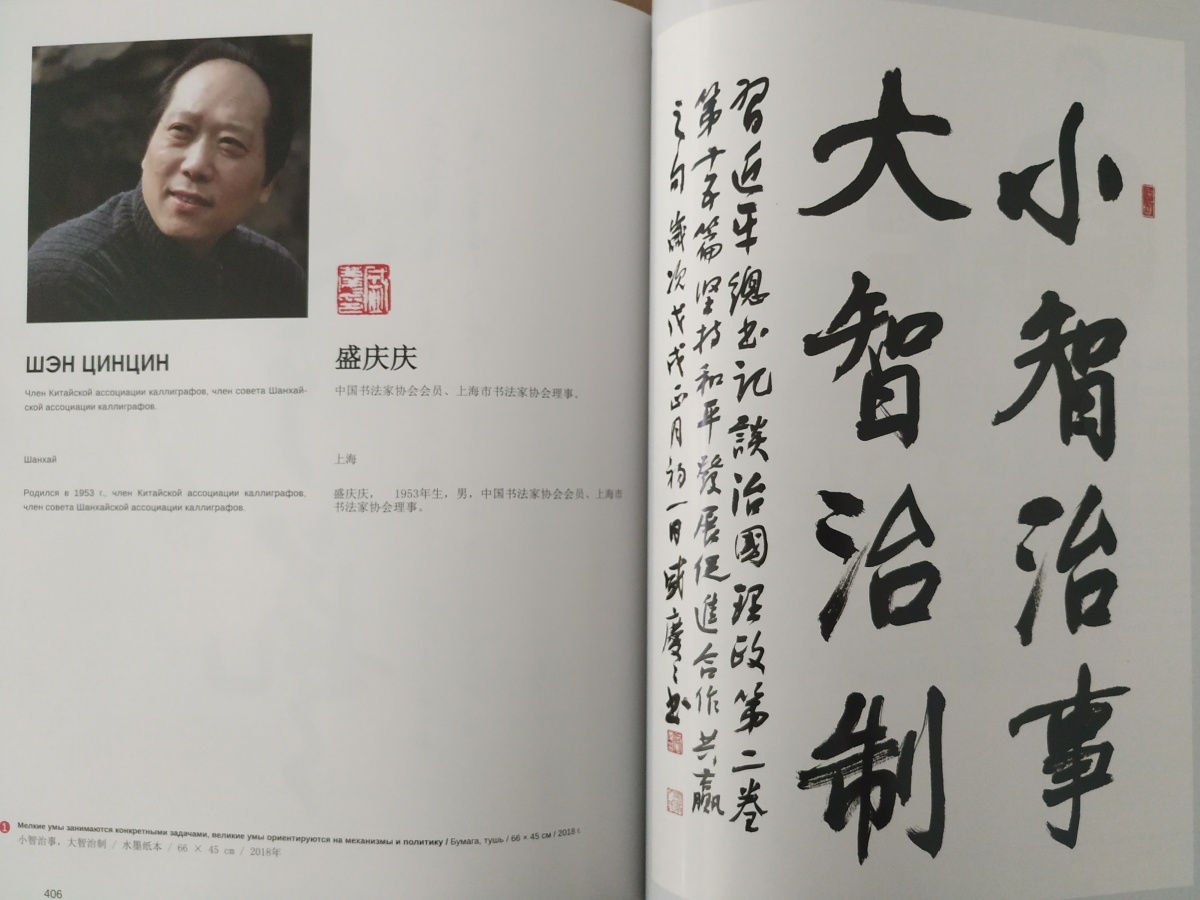 ШЭН ЦИНЦИН
Член Китайской ассоциации каллиграфов, член совета Шанхай-
ской ассоциации каллиграфов.
Шанхай
Родился в 1953 г., член Китайской ассоциации каллиграфов,
член совета Шанхайской ассоциации каллиграфов.
盛庆庆
中国书法家协会会员、上海市书法家协会理事。
上海
盛庆庆， 1953年生，男，中国书法家协会会员、上海市
书法家协会理事。
1 Мелкие умы занимаются конкретными задачами, великие умы ориентируются на механизмы и политику / Бумага, тушь / 66 × 45 см / 2018 г.
小智治事，大智治制 / 水墨纸本 / 66 × 45 cm / 2018年
406
小智治事
大智治制
習近平總书记談治國理政第二卷
第十五篇坚持和平發展促進合作共赢
之句歲次戊戌正月初一日盛慶〻书